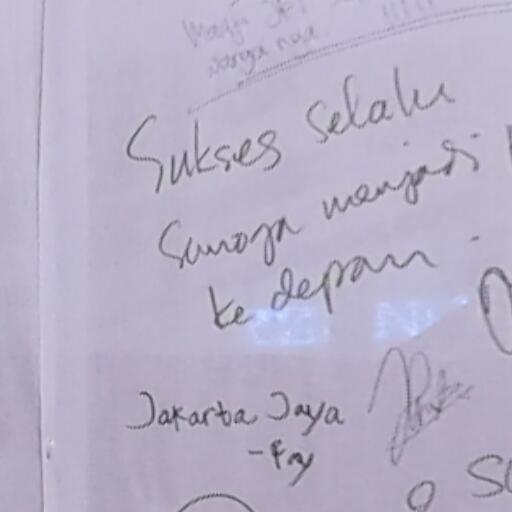 warga nya
Sukses Selalu
Semoga menjadi
ke depan.
Jakarta Jaya
- Fry